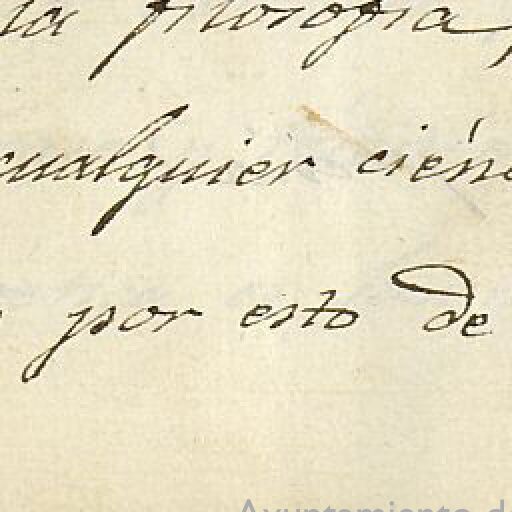 la filosofia,
cualquier ciénc
por esto de
Ayuntamiento d